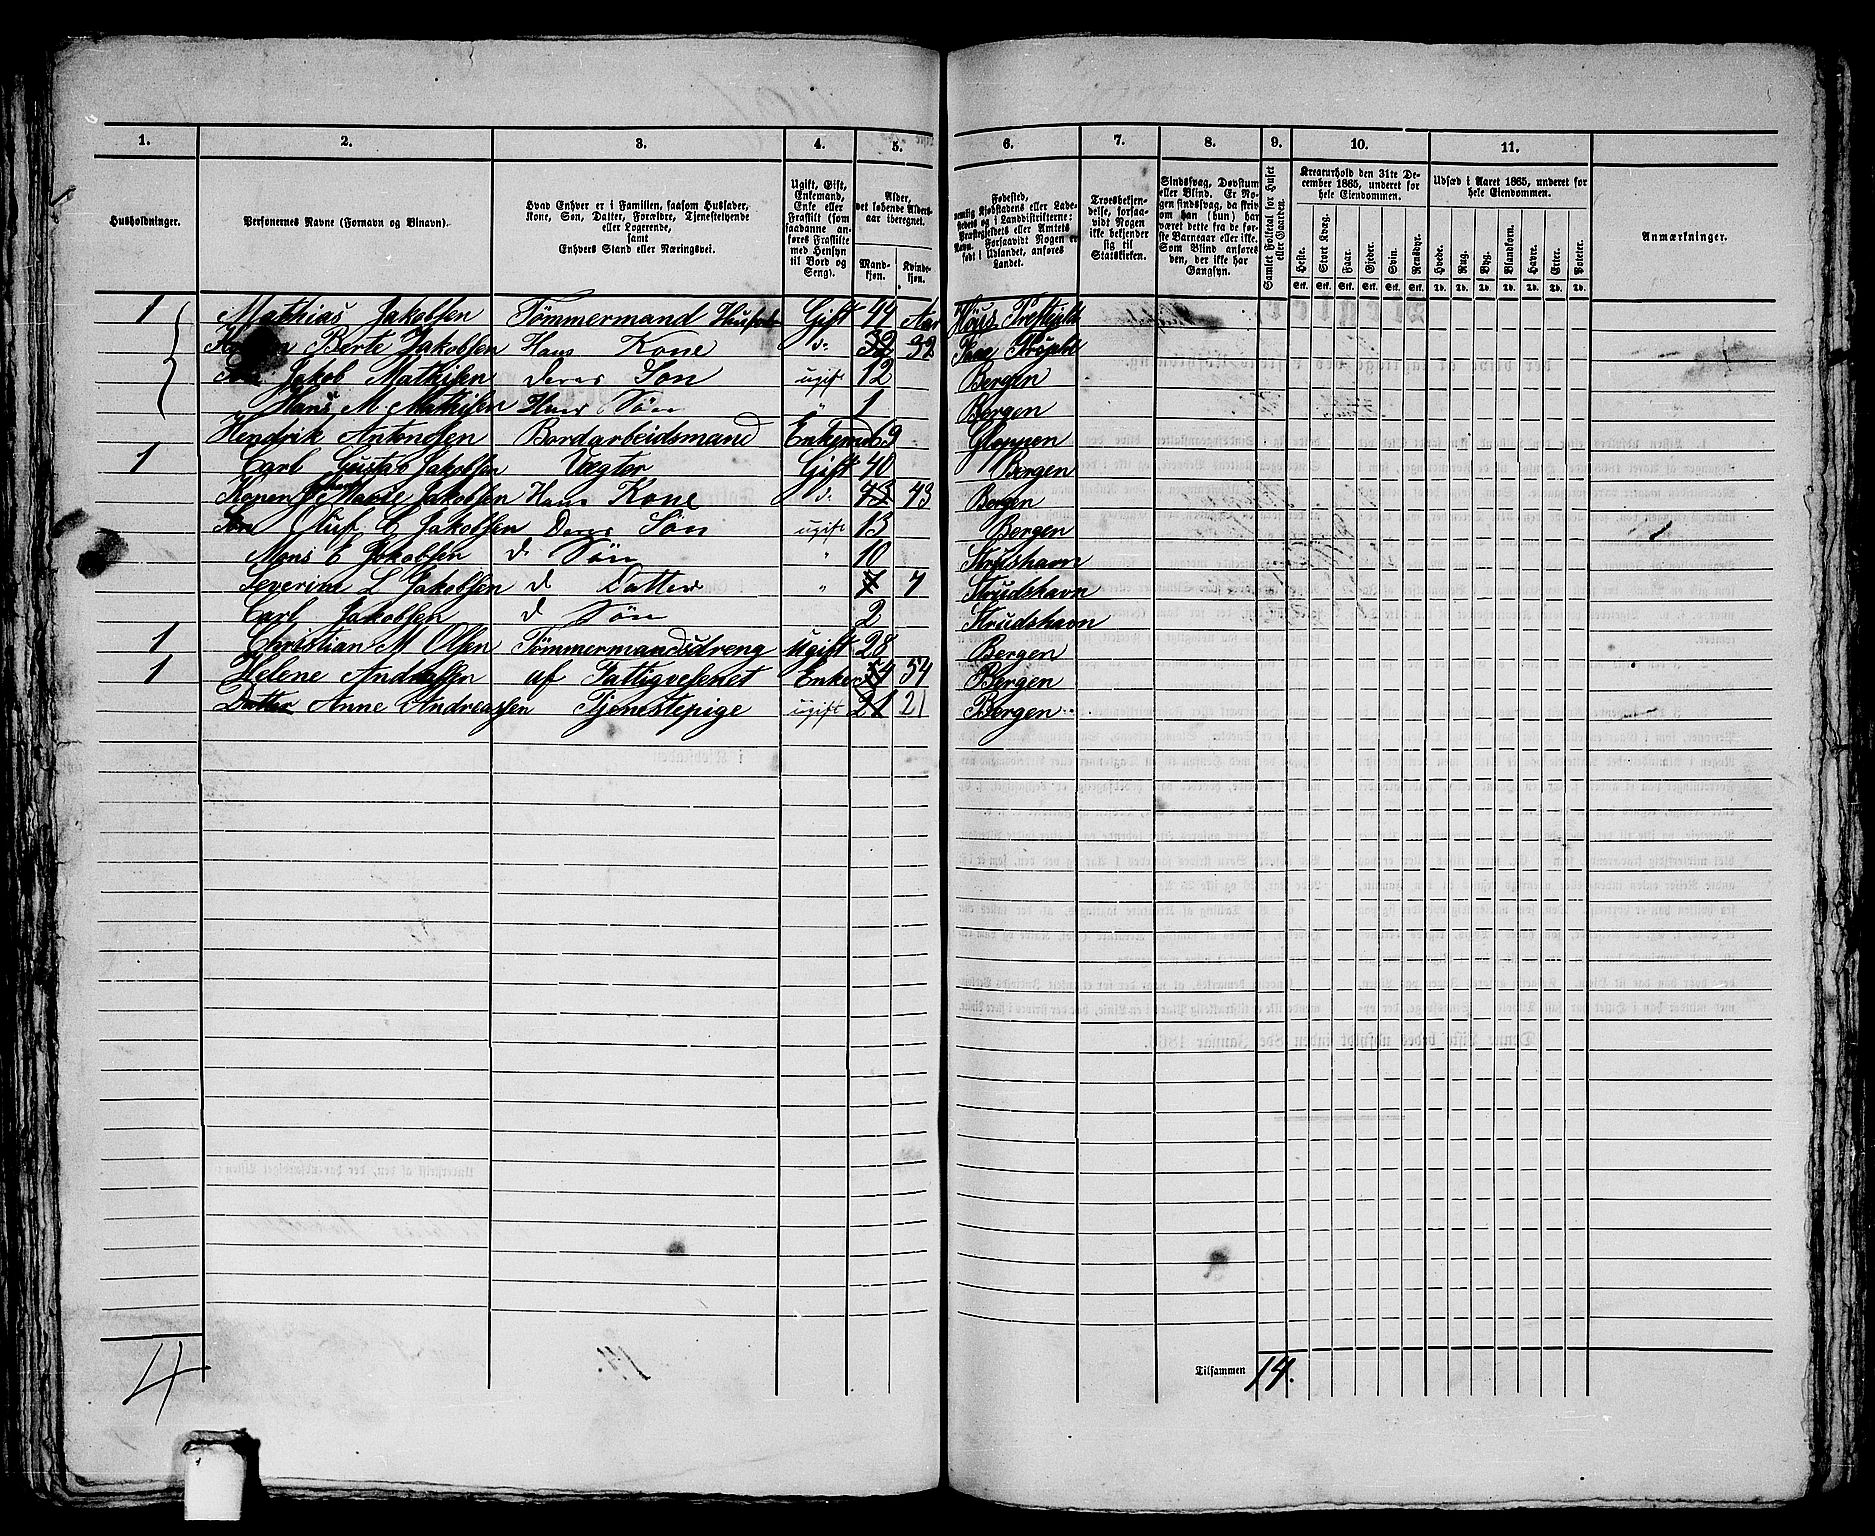 1. 2. 3. 4. 5. 6. 7. 8. 9. 10. 11.
Husholdninger.
Personernes Navne (Fornavn og Binavn).
Hvad Enhver er i Familien, saasom Husfader,
Kone, Søn, Datter, Forældre, Tjenestetyende
eller Logerende,
samt
Enhvers Stand eller Næringsvei.
Ugift, Gift,
Enkemand,
Enke eller
Fraskilt (som
saadanne an-
føres Fraskilte
med Hensyn
til Bord og
Seng).
Alder,
det løbende Alders-
aar iberegnet.
Mand-
kjøn.
Kvinde-
kjøn.
Fødested,
nemlig Kjøbstadens eller Lade-
stedets og i Landdistrikterne:
Præstegjeldets eller Amtets
Navn. Forsaavidt Nogen er
født i Udlandet, anføres
Landet.
Troesbekjen-
delse, forsaa-
vidt Nogen
ikke bekjender
sig til
Statskirken.
Sindssvag, Døvstum
eller Blind. Er No-
gen sindssvag, da skriv
om han (hun) har
været dette fra de før-
ste Barneaar eller ikke.
Som Blind anføres
den, der ikke har
Gangsyn.
Samlet Folketal for Huset
eller Gaarden.
Kreaturhold den 31te De-
cember 1865, underet for
hele Eiendommen.
Heste. Stort Kvæg. Faar. Gjeder. Svin. Rensdyr.
Stk. Stk. Stk. Stk. Stk. Stk.
Udsæd i Aaret 1865, underet for
hele Eiendommen.
Hvede. Rug. Byg. Blandkorn. Havre. Erter. Poteter.
Td. Td. Td. Td. Td. Td. Td.
Anmærkninger.
1 Mathias Jakobsen Tømmermand Gift 44 Aar
Berte Jakobsen Hans Kone d. 32 32
Jakob Mathisen Deres Søn ugift 12 Bergen
Hans M Mathisen Søn " 1 Bergen
Hendrik Antonesen Bordarbeidsmand Enkemd 69 Gloppen
1 Carl Gustav Jakobsen Vægter Gift 40 Bergen
Konen Marie Jakobsen Hans Kone d. 43 43 Bergen
Søn Oluf C Jakobsen Deres Søn ugift 13 Bergen
Mons E Jakobsen d Søn " 10 Strudshavn
Severine L Jakobsen d Datter " 7 Strudshavn
Carl Jakobsen d Søn 2 Strudshavn
1 Christian M Olsen Tømmermandsdreng Ugift 28 Bergen
1 Helene Andreassen af Fattigvesenet Enke 54 54 Bergen
Datter Anne Andreassen Tjenestepige ugift 21 21 Bergen
4
Tilsammen 14.